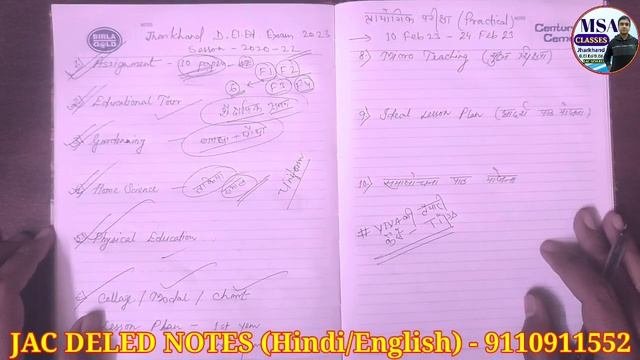 BIRLA GOLD
NOTES
Jharkhand D.El.Ed Exam 2023
Session - 2020-22
1) Assignment - 10 paper
6 F1 F2
F3 F4
2) Educational Tour
शैक्षिक भ्रमण
3) Gardening
गमला + पौधा
4) Home Science
तकिया
रुमाल
Uniform
5) Physical Education
6) Collage / Modal / Chart
Lesson Plan - 1st year
प्रायोगिक परीक्षा (Practical)
→ 10 Feb 23 - 24 Feb 23
8) Micro Teaching (सूक्ष्म शिक्षण)
9) Ideal Lesson Plan (आदर्श पाठ योजना)
10) समालोचना पाठ योजना
# VIVA की तैयारी
Century
Cement
MSA
CLASSES
Jharkhand
JAC DELED NOTES (Hindi/English) - 9110911552